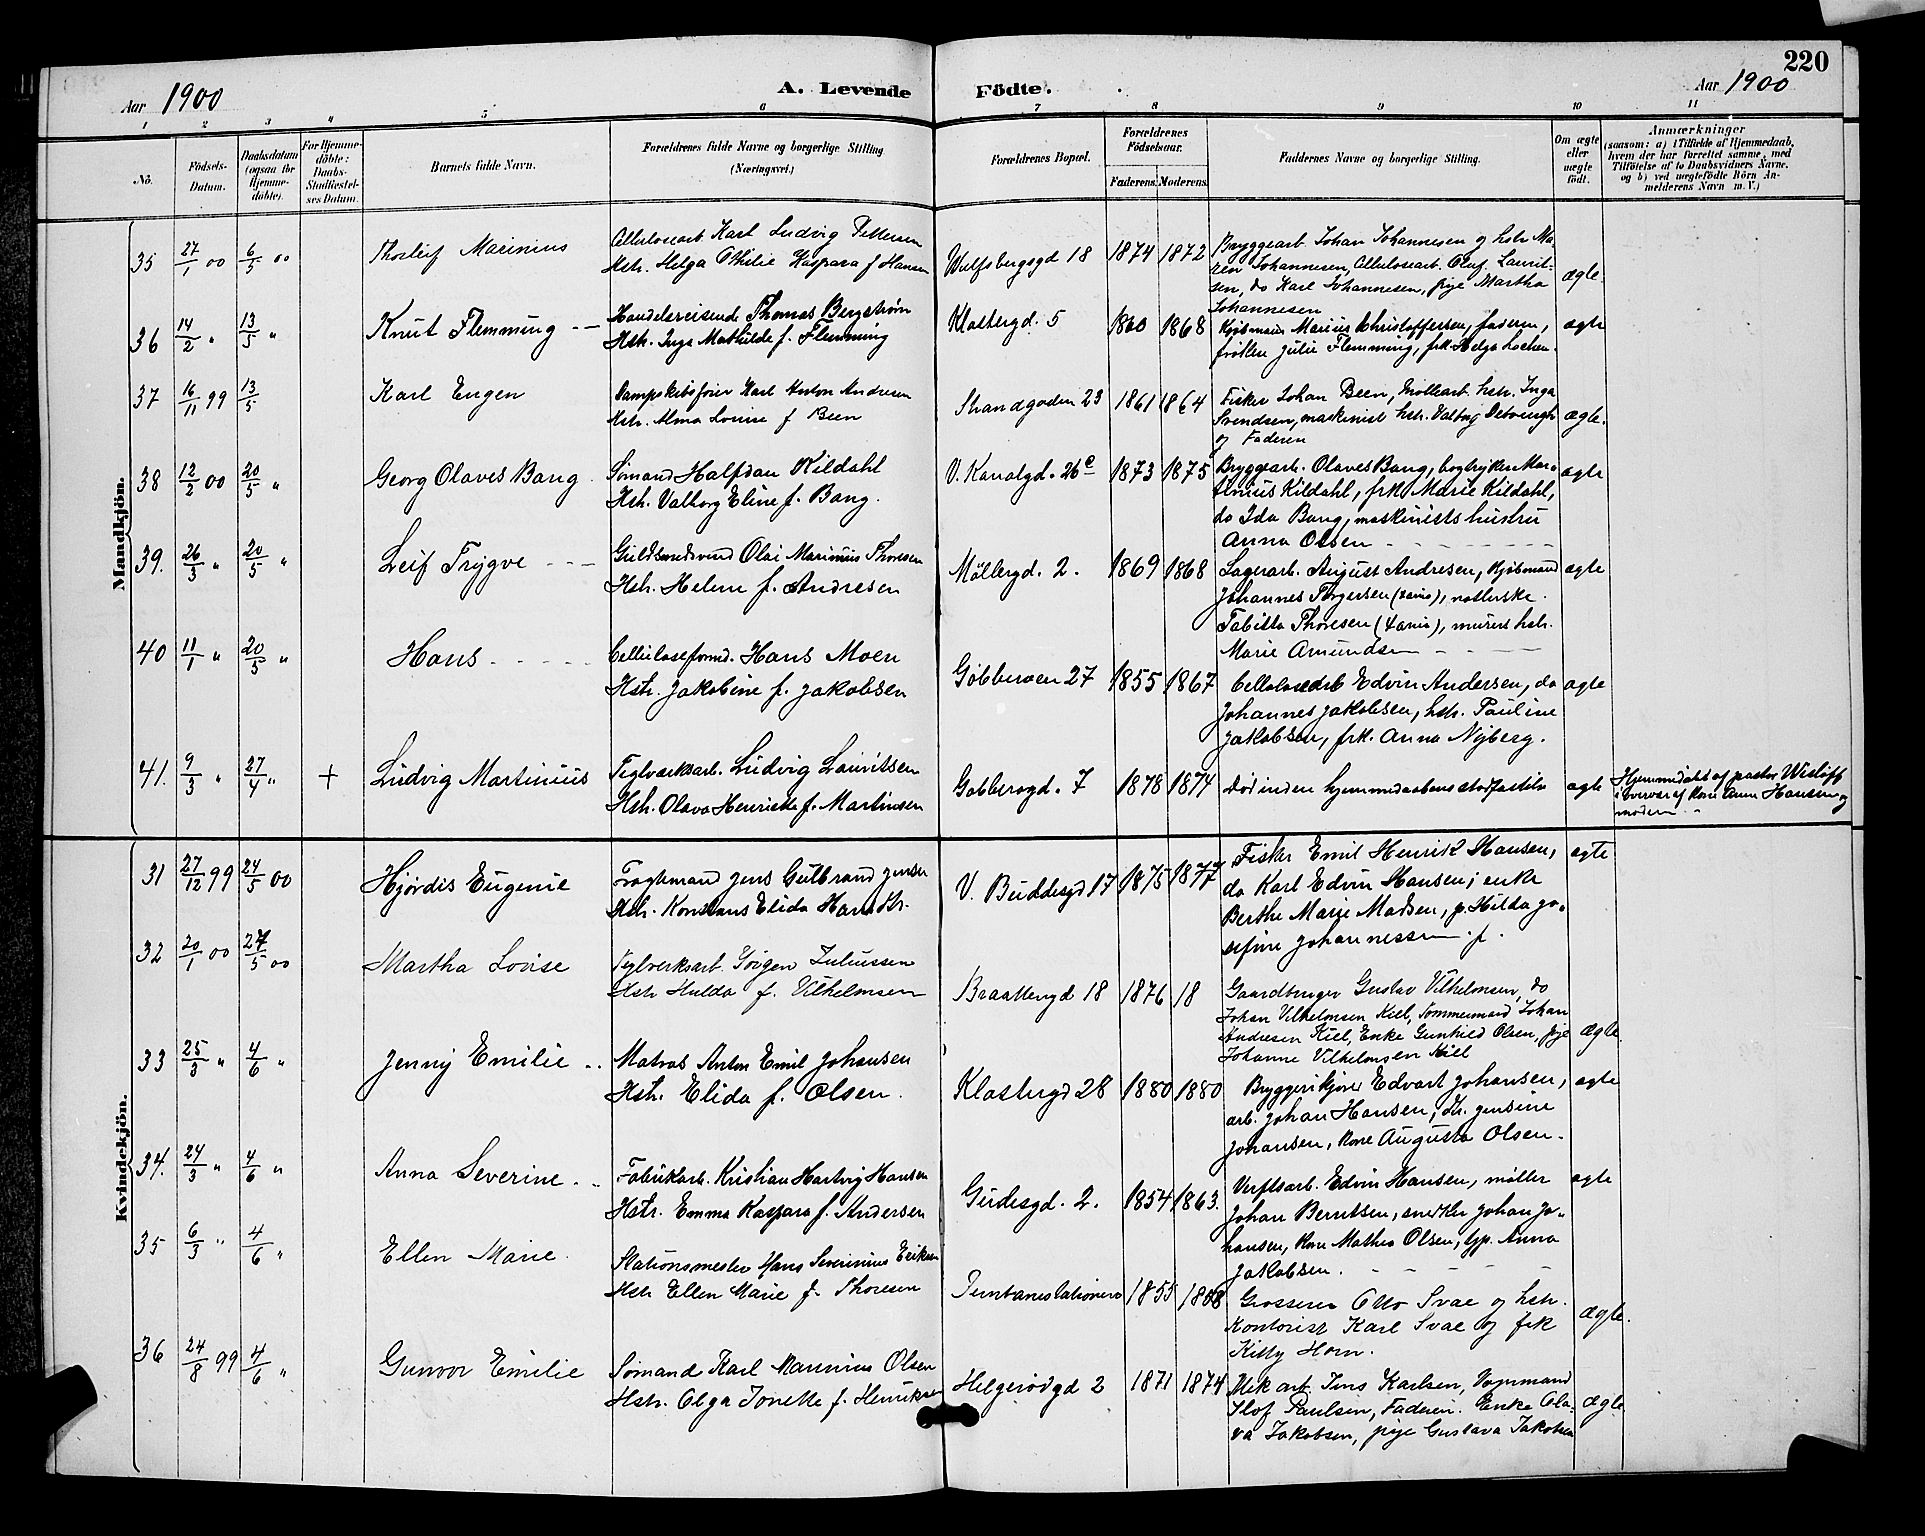 220
Aar 1900
A. Levende
Födte.
Aar 1900
1 2 3 4 5 6 7 8 9 10 11
No.
Födsels-
Datum.
Daabsdatum
(ogsaa for
Hjemme-
döbte).
For Hjemme-
döbte:
Daabs-
Stadfæstel-
ses Datum.
Barnets fulde Navn.
Forældrenes fulde Navne og borgerlige Stilling
(Næringsvei.)
Forældrenes Bopæl.
Forældrenes
Födselsaar.
Faderens. Moderens.
Faddernes Navne og borgerlige Stilling.
Om ægte
eller
uægte
födt.
Anmærkninger
(saasom: a) i Tilfælde af Hjemmedaab,
hvem der har forrettet samme, med
Tilföielse af to Daabsvidners Navne,
og b) ved uægtefödte Börn An-
melderens Navn m. V.)
Mandkjön.
35 27/1 00 6/5 00 Thorleif Marinius
Cellulosearb. Karl Ludvig Pettersen
Hstr. Helga Othilie Kaspara f Hansen
Wulfsbergsgd 18 1874 1872
Bryggearb. Johan Johannesen og hstr Ma-
ren Johannesen, Cellulosearb. Oluf Laurit-
sen, do Karl Johannesen, pige Martha
Johannesen
ægte.
36 14/2 " 13/5 " Knut Flemming
Handelsreisende Thomas Bergstrøm
Hstr. Inga Mathilde f. Flemming
Klostergd. 5 1868
Kjøbmand Marius Christoffersen, faderen,
frøken Julie Flemming, frk. Helga Lochen.
ægte
37 16/11 99 13/5 Karl Eugen
Dampskibsfører Karl Anton Andresen
Hstr. Alma Lovise f Been
Strandgaden 23 1861 1864
Fisker Johan Been, Møllearb. hstr. Inga
Svendsen, maskinist hstr. Valborg
og Faderen
ægte.
38 12/2 00 20/5 " Georg Olaves Bang
Sømand Halfdan Kildahl
Hstr. Valborg Eline f. Bang.
V. Kanalgd. 26 c 1873 1875
Bryggearb. Olaves Bang, bogtrykker Mar-
tinius Kildahl, frk. Marie Kildahl,
do Ida Bang, maskinists hustru
Anna Olsen
ægte
39. 26/3 " 20/5 " Leif Trygve
Guldsmedsvend Olai Marinius Thoresen
Hstr. Helene f. Andresen
Møllergd. 2. 1869 1868
Lagerarb. August Andresen, kjøbmand
Johannes Torgersen
Tabitta Thoresen murers hstr.
Marie Amundsen
ægte
40 11/1 " 20/5 " Hans
Celluloseformd. Hans Moen
Hstr. Jakobine f. Jakobsen
Gobberoen 27 1855 1867
Cellulosearb Edvin Andersen, do
Johannes Jakobsen, hstr. Pauline
Jakobsen, frk. Anna Nyberg.
ægte
41. 9/3 " 27/4 " + Ludvig Martinius
Teglværksarb. Ludvig Lauritssen
Hstr. Olava Henriette f. Martinsen
Gobberogd. 7 1878 1874
Død inden hjemmedaabens stadfæstelse
ægte
Hjemmedøbt af pastor Wisløff
i overvær af kone Anne Hansen og
moderen
Kvindekjön.
31 27/12 99 24/5 00 Hjørdis Eugenie
Fragtmand Jens Gulbrand Jensen
Hstr. Konstans Elida
V. Buddesgd 17 1875 1877
Fisker Emil Henrik Hansen,
do Karl Edvin Hansen; enke
Berthe Marie Madsen, p. Hilda Jo-
sefine Johannessen
ægte
32 20/1 00 27/5 00 Martha Lovise
Teglverksarb. Jørgen Juliussen
Hstr Hulda f. Vilhelmsen
Braattergd 18 1876 18
Gaardbruger Gustav Vilhelmsen, do
Johan Vilhelmsen Kiel, Tømmermand Johan
Andresen Kiel, Enke Gunhild Olsen, pige
Johanne Vilhelmsen Kiel
ægte.
33 25/3 " 4/6 " Jenny Emilie
Matros Anton Emil Johansen
Hstr. Elida f. Olsen.
Klostergd 28 1880 1880
Bryggerikjører Edvart Johansen,
arb. Johan Hansen, Jensine
Johansen, kone Augusta Olsen.
ægte
34. 24/3 " 4/6 " Anna Severine
Fabrikarb. Kristian Hartvig Hansen
Hstr. Emma Kaspara f. Andersen
Gudesgd. 2. 1854 1863.
Verftsarb. Edvin Hansen, møller
Johan Berntsen, snekker Johan Jo-
hansen, kone Mathea Olsen, tjp. Anna
Jakobsen.
ægte
35 6/3 " 4/6 " Ellen Marie.
Stationsmester Hans Severinius Eriksen
Hstr Ellen Marie f. Thoresen
1855
Grosserer Otto Svae og hstr.
Kontorist Karl Svae og frk
Kitty Horn.
ægte.
36 24/8 99 4/6 " Gunvor Emilie
Sømand Karl Marinius Olsen
Hstr. Olga Jonette f. Henriksen
Helgerødgd 2 1871 1874
Mek arb. Jens Karlsen, Vognmand
Olof Paulsen, Faderen. Enke Ola-
va Jakobsen, pige Gustava Jakobsen
ægte